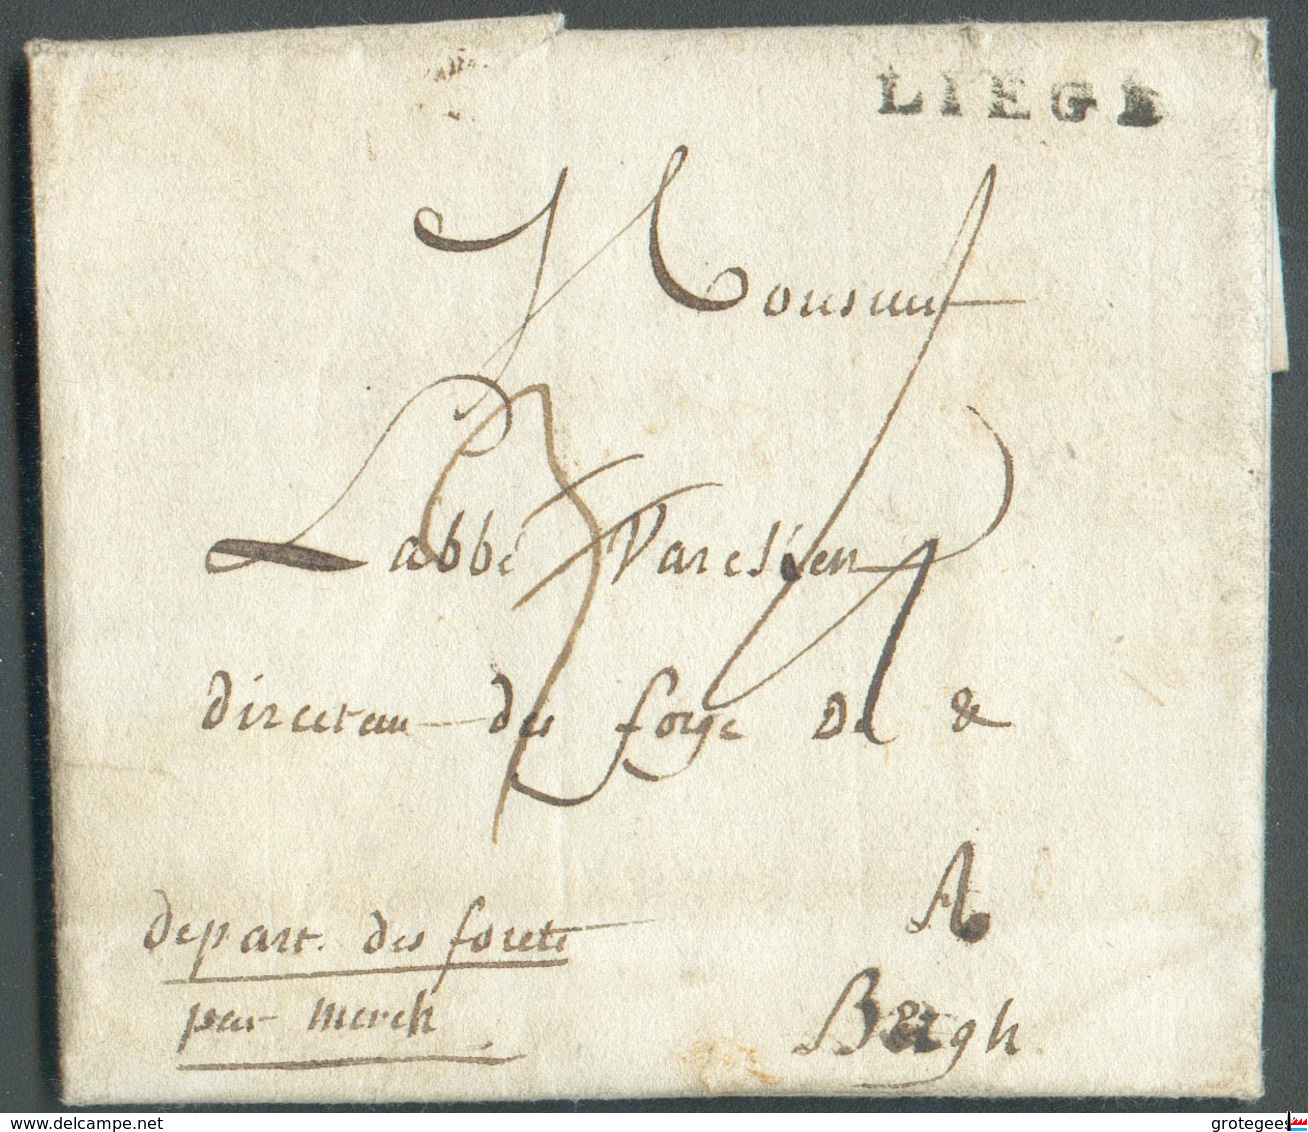 LIEGE
Monsieur
L'abbé Vareslien
directeur des forge de &
A
Bergh
depart. des forets
par merch
delcampe.net
grotegees